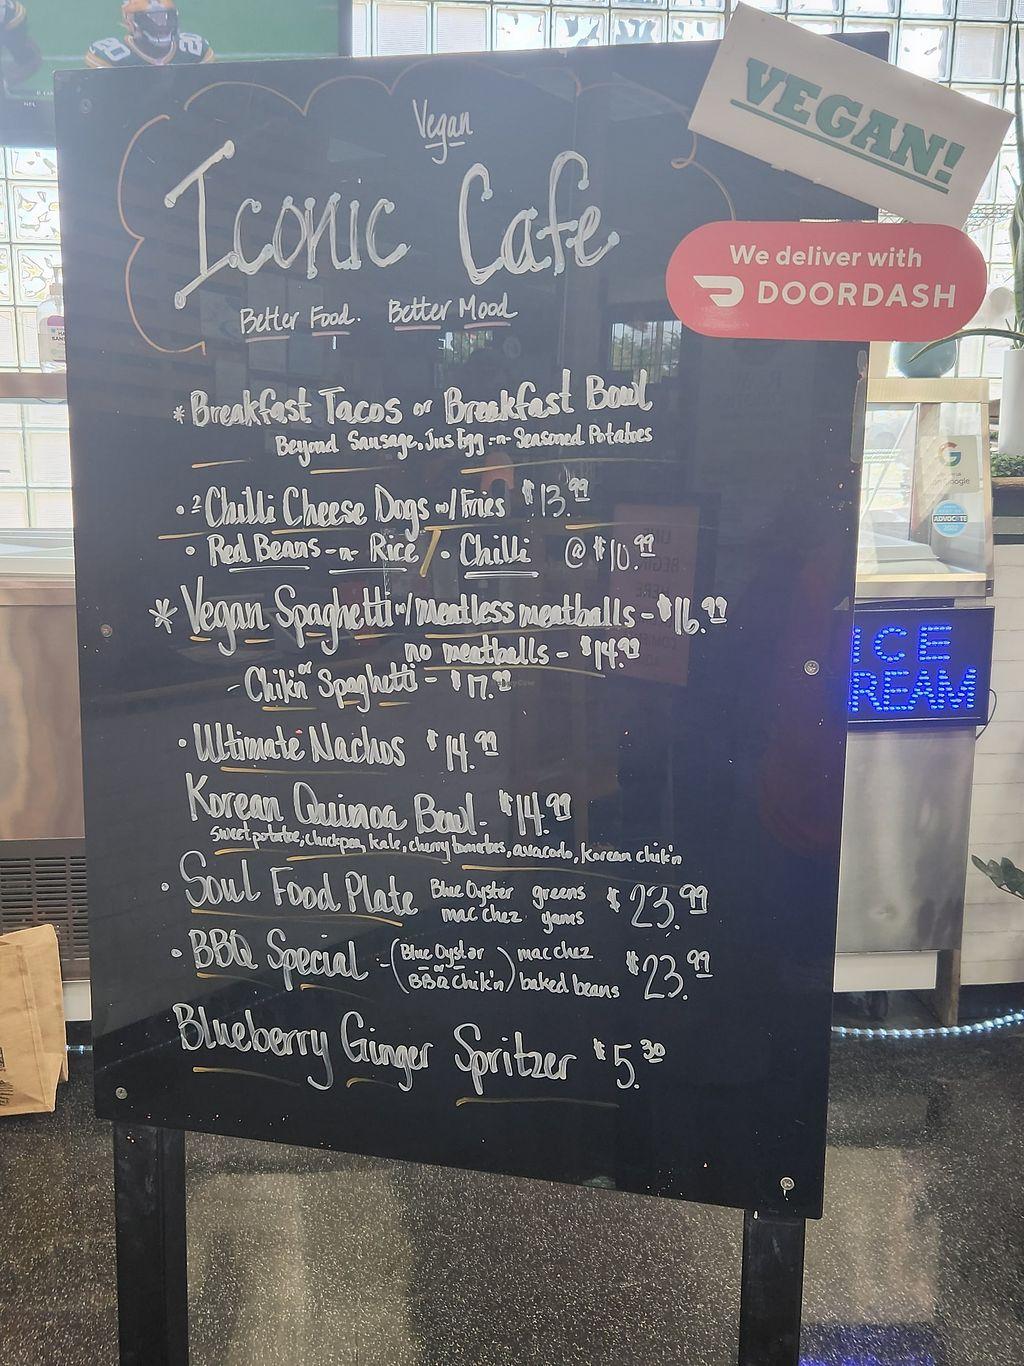 VEGAN!
Vegan
Iconic Cafe
Better Food. Better Mood
We deliver with
DOORDASH
* Breakfast Tacos or Breakfast Bowl
Beyond Sausage, Jus Egg -n- Seasoned Potatoes
• 2 Chilli Cheese Dogs w/ Fries $13.99
• Red Beans -n- Rice / - Chilli @ $10.99
* Vegan Spaghetti w/ meatless meatballs - $16.99
no meatballs - $14.99
or
- Chik'n Spaghetti - $17.99
• Ultimate Nachos $14.99
Korean Quinoa Bowl - $14.99
sweet potatoe, chickpea, kale, cherry tomatoes, avacado, Korean chik'n
• Soul Food Plate Blue Oyster greens $23.99
mac chez yams
• BBQ Special - (Blue Oystar mac chez $23.99
or
BBQ Chik'n) baked beans
Blueberry Ginger Spritzer $5.30
ICE
REAM
Google
ADVOCATE
20 20
NFL